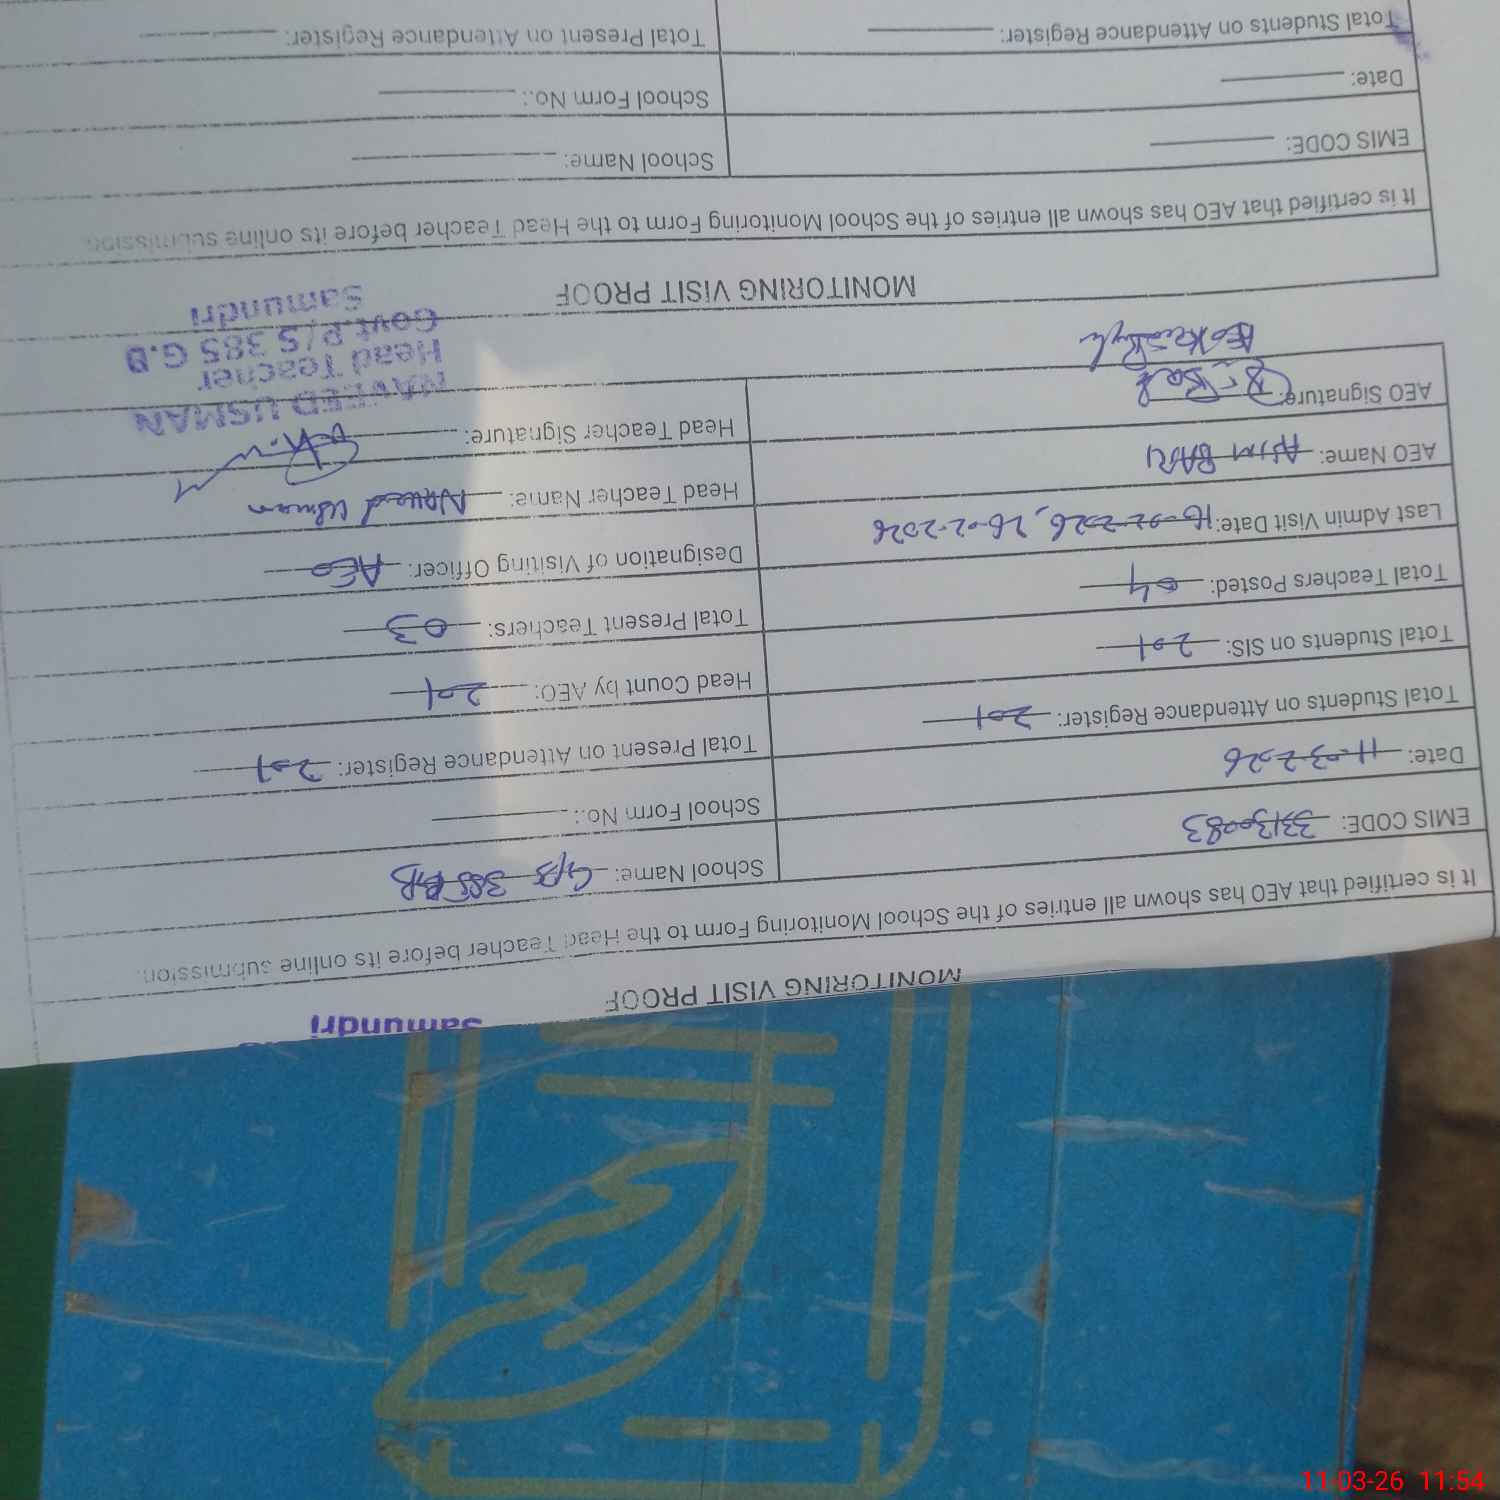 Samundri
MONITORING VISIT PROOF
It is certified that AEO has shown all entries of the School Monitoring Form to the Head Teacher before its online submission.
EMIS CODE: 33130083 School Name: GPS 385 G.B
Date: 11-03-2026 School Form No.:
Total Students on Attendance Register: 201 Total Present on Attendance Register: 201
Total Students on SIS: 201 Head Count by AEO: 201
Total Teachers Posted: 04 Total Present Teachers: 03
Last Admin Visit Date: 16-02-2026, 26-02-2026 Designation of Visiting Officer: AEO
AEO Name: ASIM BARI Head Teacher Name: Naveed Usman
AEO Signature: Head Teacher Signature:
AEO
NAVEED USMAN
Head Teacher
Govt.P/S 385 G.B
Samundri
MONITORING VISIT PROOF
It is certified that AEO has shown all entries of the School Monitoring Form to the Head Teacher before its online submission.
EMIS CODE: School Name:
Date: School Form No.:
Total Students on Attendance Register: Total Present on Attendance Register:
11-03-26 11:54